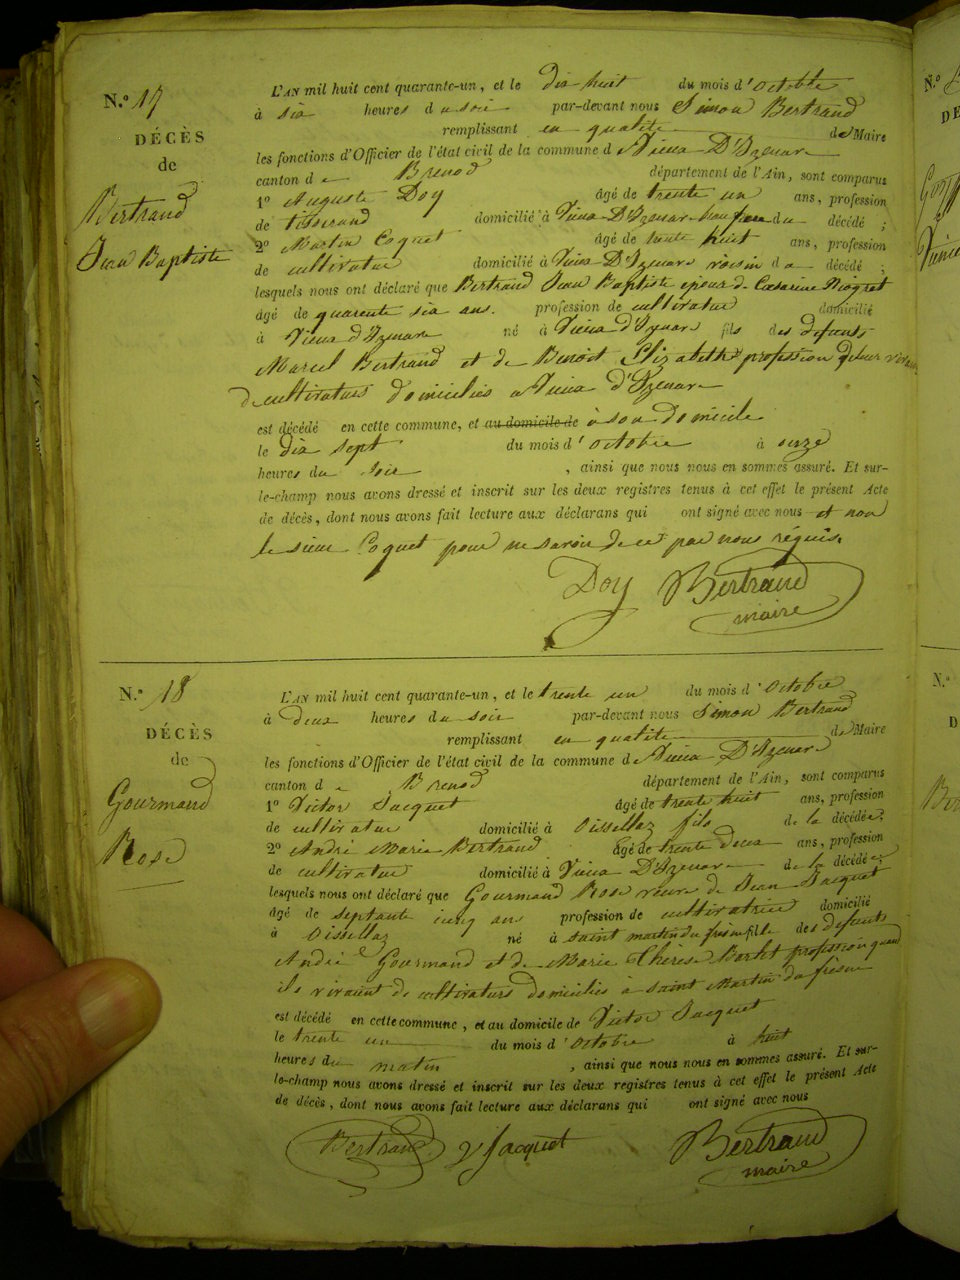 N.° 17
DÉCÈS
de
Bertrand
Jean Baptiste
L'AN mil huit cent quarante-un, et le dix huit du mois d'Octobre
à six heures du soir par-devant nous Simon Bertrand
remplissant en qualité de Maire
les fonctions d'Officier de l'état civil de la commune de Vieux D'Izenave
canton de Brenod département de l'Ain, sont comparus
1° Auguste Doy âgé de trente un ans, profession
de tisserand domicilié à Vieux D'Izenave beau frere du décédé ;
2° Martin Coquet âgé de trente huit ans, profession
de cultivateur domicilié à Vieux D'Izenave voisin du décédé ;
lesquels nous ont déclaré que Bertrand Jean Baptiste epoux de Cesarine
âgé de quarente six ans. profession de cultivateur domicilié
à Vieux d'Izenave né à Vieux d'Izenave fils des défunts
Marcel Bertrand et de Benoit Elizabeth profession de leur
de cultivateurs domiciliés a Vieux d'Izenave
est décédé en cette commune, et au domicile de à son domicile
le dix sept du mois d'octobre à onze
heures du soir , ainsi que nous nous en sommes assuré. Et sur-
le-champ nous avons dressé et inscrit sur les deux registres tenus à cet effet le présent Acte
de décès, dont nous avons fait lecture aux déclarans qui ont signé avec nous et non
le sieur Coquet pour ne savoir de ce par nous réquis.
Doy Bertrand
maire
N.° 18
DÉCÈS
de
Gourmand
Rose
L'AN mil huit cent quarante-un, et le trente un du mois d'Octobre
à deux heures du soir par-devant nous Simon Bertrand
remplissant en qualité de Maire
les fonctions d'Officier de l'état civil de la commune de Vieux D'Izenave
canton de Brenod département de l'Ain, sont comparus
1° Victor Jacquet âgé de trente huit ans, profession
de cultivateur domicilié à Oissellaz fils de la décédée;
2° André Marie Bertrand âgé de trente deux ans, profession
de cultivateur domicilié à Vieux D'Izenave de la décédée;
lesquels nous ont déclaré que Gourmand Rose veuve de Jean Jacquet
âgé de septante cinq ans profession de cultivatrice domicilié
à Oissellaz né à saint martin du fresne fille des defunts
André Gourmand et de Marie Thérèse profession quand
ils vivaient de cultivateurs domiciliés à Saint Martin du frêsne
est décédé en cette commune, et au domicile de Victor Jacquet
le trente un du mois d'octobre à huit
heures du matin , ainsi que nous nous en sommes assuré. Et sur-
le-champ nous avons dressé et inscrit sur les deux registres tenus à cet effet le présent Acte
de décès, dont nous avons fait lecture aux déclarans qui ont signé avec nous
Bertrand V Jacquet Bertrand
maire